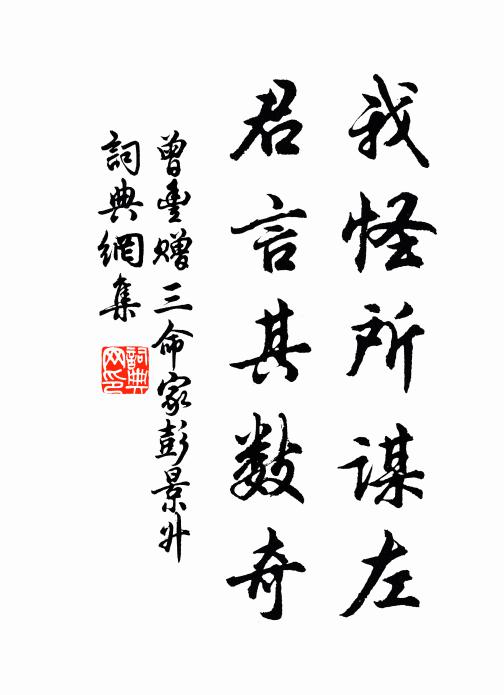 我怪所谋左
君言其数奇
曾丰赠三命家彭景升
詞典網集
詞典网印